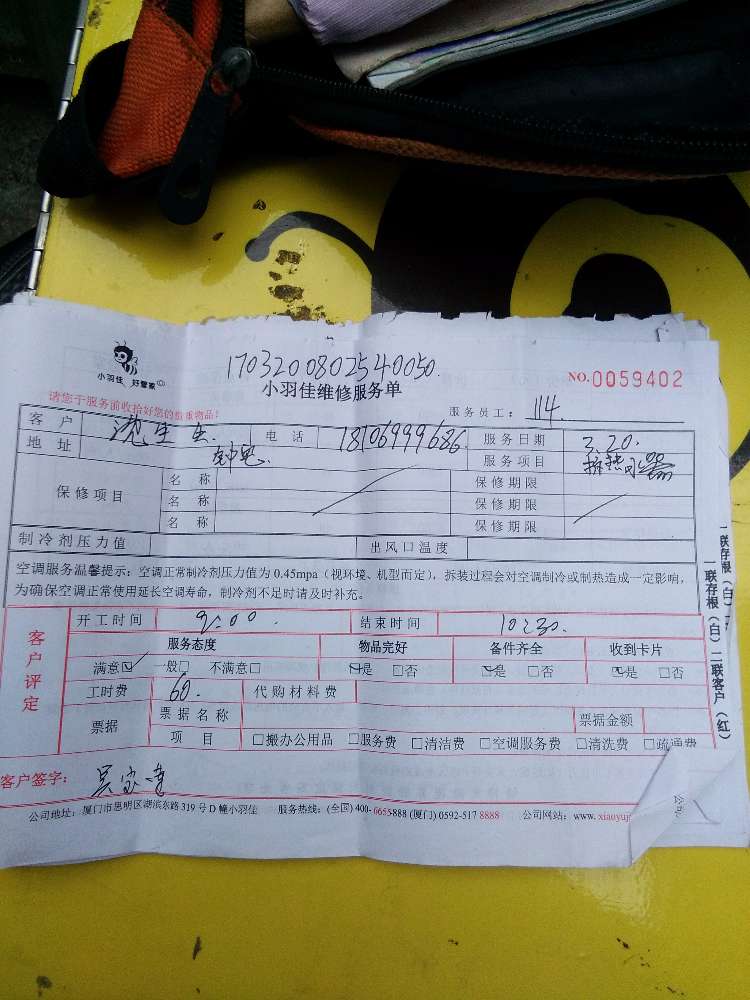 小羽佳 好管家
1703200802540050.
小羽佳维修服务单
NO.0059402
请您于服务前收拾好您的贵重物品!
服务员工: 114
客户 电话 18106999686 服务日期 3.20.
地址 服务项目 拆热水器
保修项目 名称 保修期限
名称 保修期限
名称 保修期限
制冷剂压力值 出风口温度
空调服务温馨提示:空调正常制冷剂压力值为 0.45mpa(视环境、机型而定),拆装过程会对空调制冷或制热造成一定影响,
为确保空调正常使用延长空调寿命,制冷剂不足时请及时补充。
客户评定
开工时间 9:00 结束时间 10:30.
服务态度 物品完好 备件齐全 收到卡片
满意☑ 一般□ 不满意□ ☑是 □否 ☑是 □否 ☑是 □否
工时费 60. 代购材料费
票据 票据名称 票据金额
项目 □搬办公用品 □服务费 □清洁费 □空调服务费 □清洗费 □疏通费
客户签字:
公司地址:厦门市思明区湖滨东路 319 号 D 幢小羽佳 服务热线:(全国) 400-6655-888 (厦门) 0592-517 8888 公司网站:www.xiaoyuj
一联存根(白) 二联客户(红)
一联存根(白)
公司